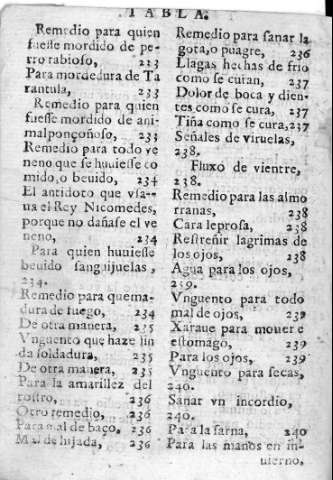 TABLA.
Remedio para quien
fuesse mordido de pe-
rro rabioso, 223
Para mordedura de Ta
rantula, 233
Remedio para quien
fuesse mordido de ani-
mal ponçoñoso, 233
Remedio para todo ve
neno que se huuiesse co
mido, o beuido, 234
El antidoto que vsa-
ua el Rey Nicomedes,
porque no dañase el ve
neno, 234
Para quien huuiesse
beuido sanguijuelas,
234.
Remedio para quema-
dura de fuego, 234
De otra manera, 235
Vnguento que haze lin
da soldadura, 235
De otra manera, 235
Para la amarillez del
rostro, 236
Otro remedio, 236
Para mal de baço, 236
Mal de hijada, 236
Remedio para sanar la
gota, o puagre, 236
Llagas hechas de frio
como se curan, 237
Dolor de boca y dien-
tes como se cura, 237
Tiña como se cura, 237
Señales de viruelas,
238.
Fluxo de vientre,
238.
Remedio para las almo
rranas, 238
Cara leprosa, 238
Restreñir lagrimas de
los ojos, 238
Agua para los ojos,
239.
Vnguento para todo
mal de ojos, 239
Xaraue para mouer e
estomago, 239
Para los ojos, 239
Vnguento para secas,
240.
Sanar vn incordio,
240.
Para la sarna, 240
Para las manos en in-
uierno,